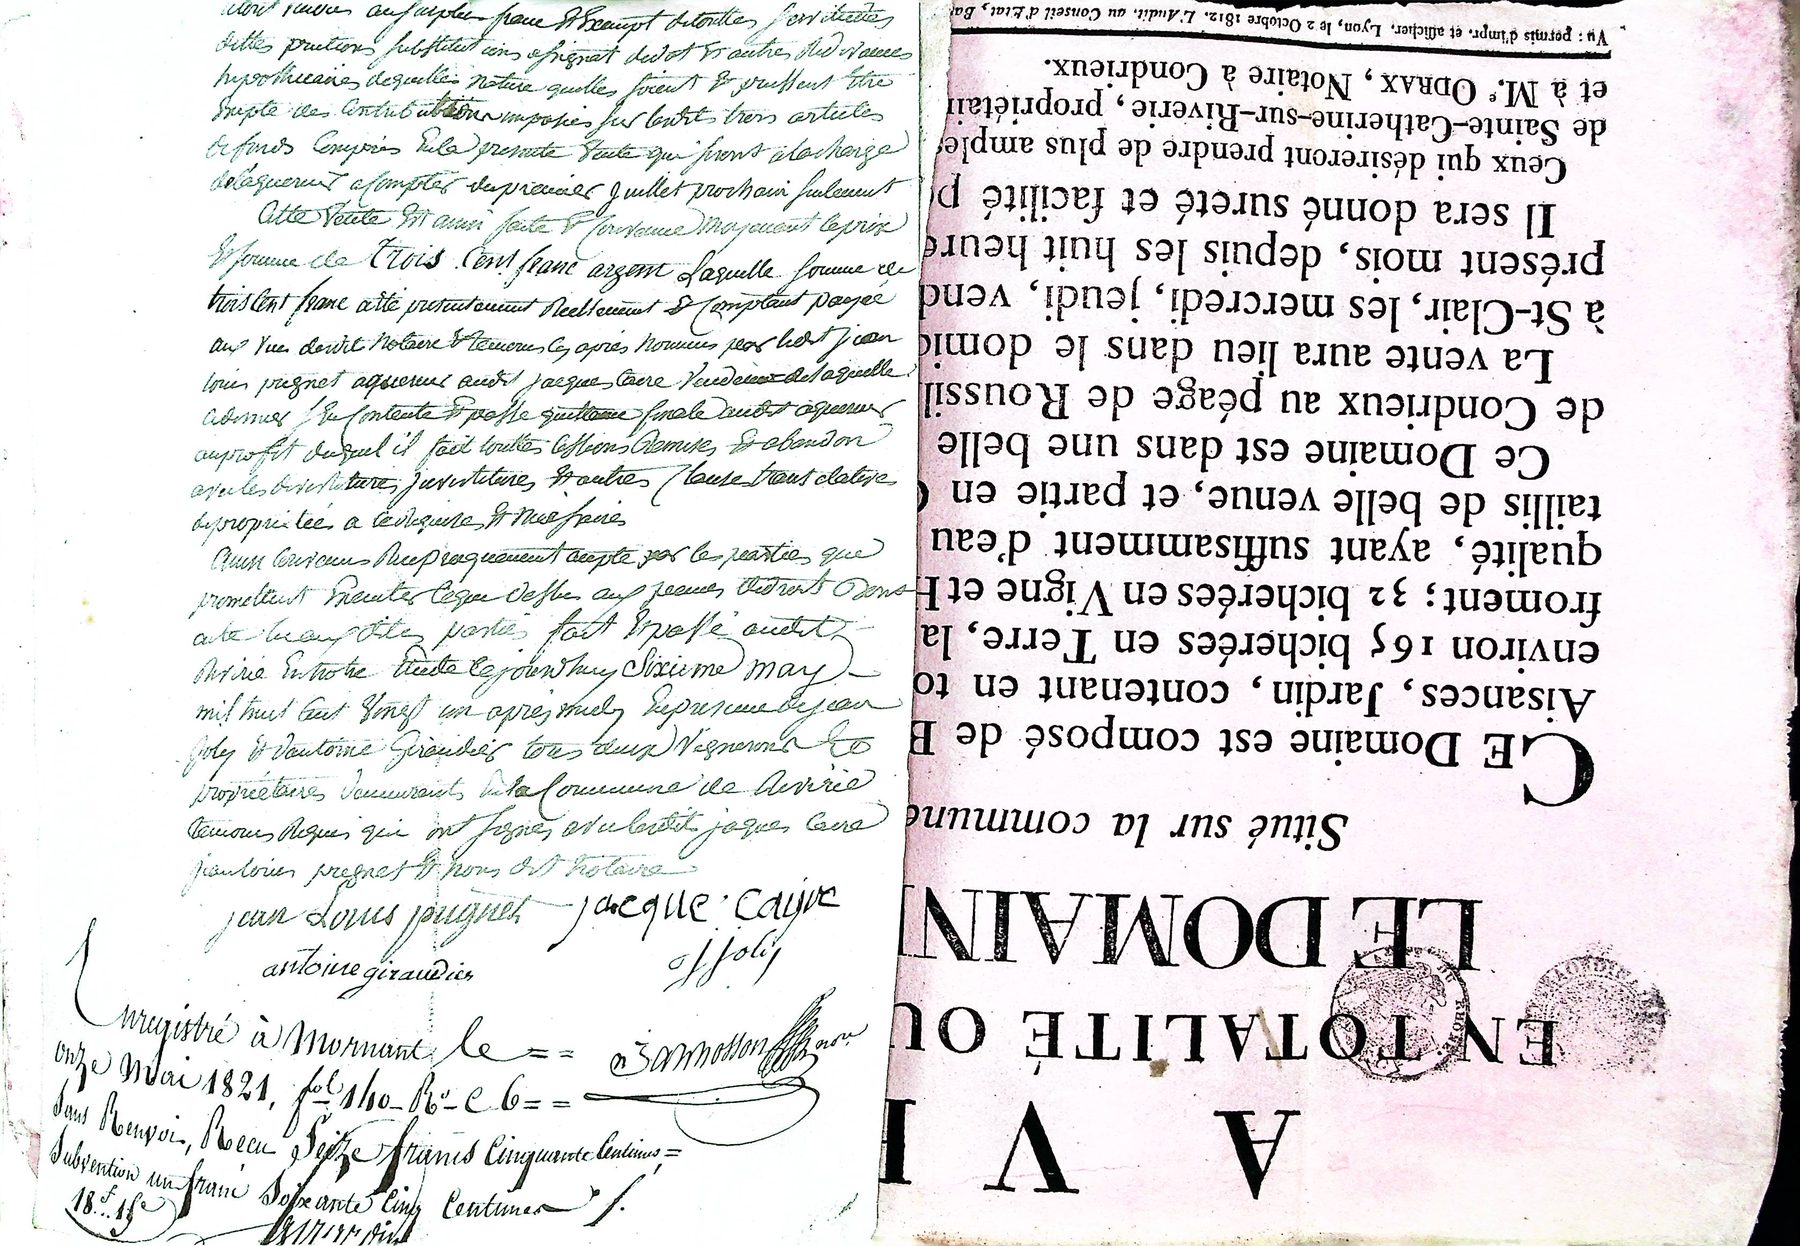 dittes pentions substitutions assignat dudot et autres redevances
hypothecaires dequelles nature quelles soient et puissent être
compte des Contributions imposés sur lesdits trois articles
de fonds Compris En la presente Vente qui seront a la charge
de laquereur a Compter du premier Juillet prochain seulement
Cette Vente Est ainsi faite et Convenue moyenant le prix
Et somme de trois Cent franc argent Laquelle somme de
trois Cent franc a été presentement Reellement et Comptant payée
aux vues dudit Notaire et temoins cy après nommés par ledit jean
louis pugnet aquereur audit jacques Caire Vendeur de laquelle
Content et passe quittance finale audit aquereur
au profit duquel il fait touttes Cessions Remises et abandon
avec les devestiture, investitures et autres Clauses translatives
de proprietées a ce Requises et Necessaires
Ainsi Convenus Reciproquement accepté par les parties que
promettent Executer Ceque Dessus aux peines de droit Dont
acte Lu aux dites parties fait et passé audit
Rivirie En notre Etude Cejourdhuy Sixieme may
mil huit Cent Vingt un après midy En presence de jean
joly et dantoine Giraudier tous deux Vignerons et
propriétaires demeurants En la Commune de Rivirie
temoins Requis qui ont signés avec lesdits jaques Caire
jean louis pugnet et nous dit Notaire
jean Louis pugnet jacque Caire
antoine giraudier j joly
Enregistré à Mornant le ==
onze Mai 1821, fol 140 Ro C 6 ==
Sans Renvoi, Recu Seize francs Cinquante Centimes =
Subvention un franc Soixante Cinq Centimes
18f 15c
A V
EN TOTALITÉ OU
LE DOMAIN
Situé sur la commune
CE Domaine est composé de
Aisances, Jardin, contenant en to
environ 165 bicherées en Terre, la
froment; 32 bicherées en Vigne et
qualité, ayant suffisamment d'eau
taillis de belle venue, et partie en
Ce Domaine est dans une belle
de Condrieux au péage de Roussil
La vente aura lieu dans le domic
à St-Clair, les mercredi, jeudi, vend
présent mois, depuis les huit heure
Il sera donné sureté et facilité p
Ceux qui désireront prendre de plus amples
de Sainte-Catherine-sur-Riverie, propriétair
et à M.e ODRAX, Notaire à Condrieux.
Vu : permis d'impr. et afficher. Lyon, le 2 Octobre 1812. L'Audit. au Conseil d'Etat, Ba